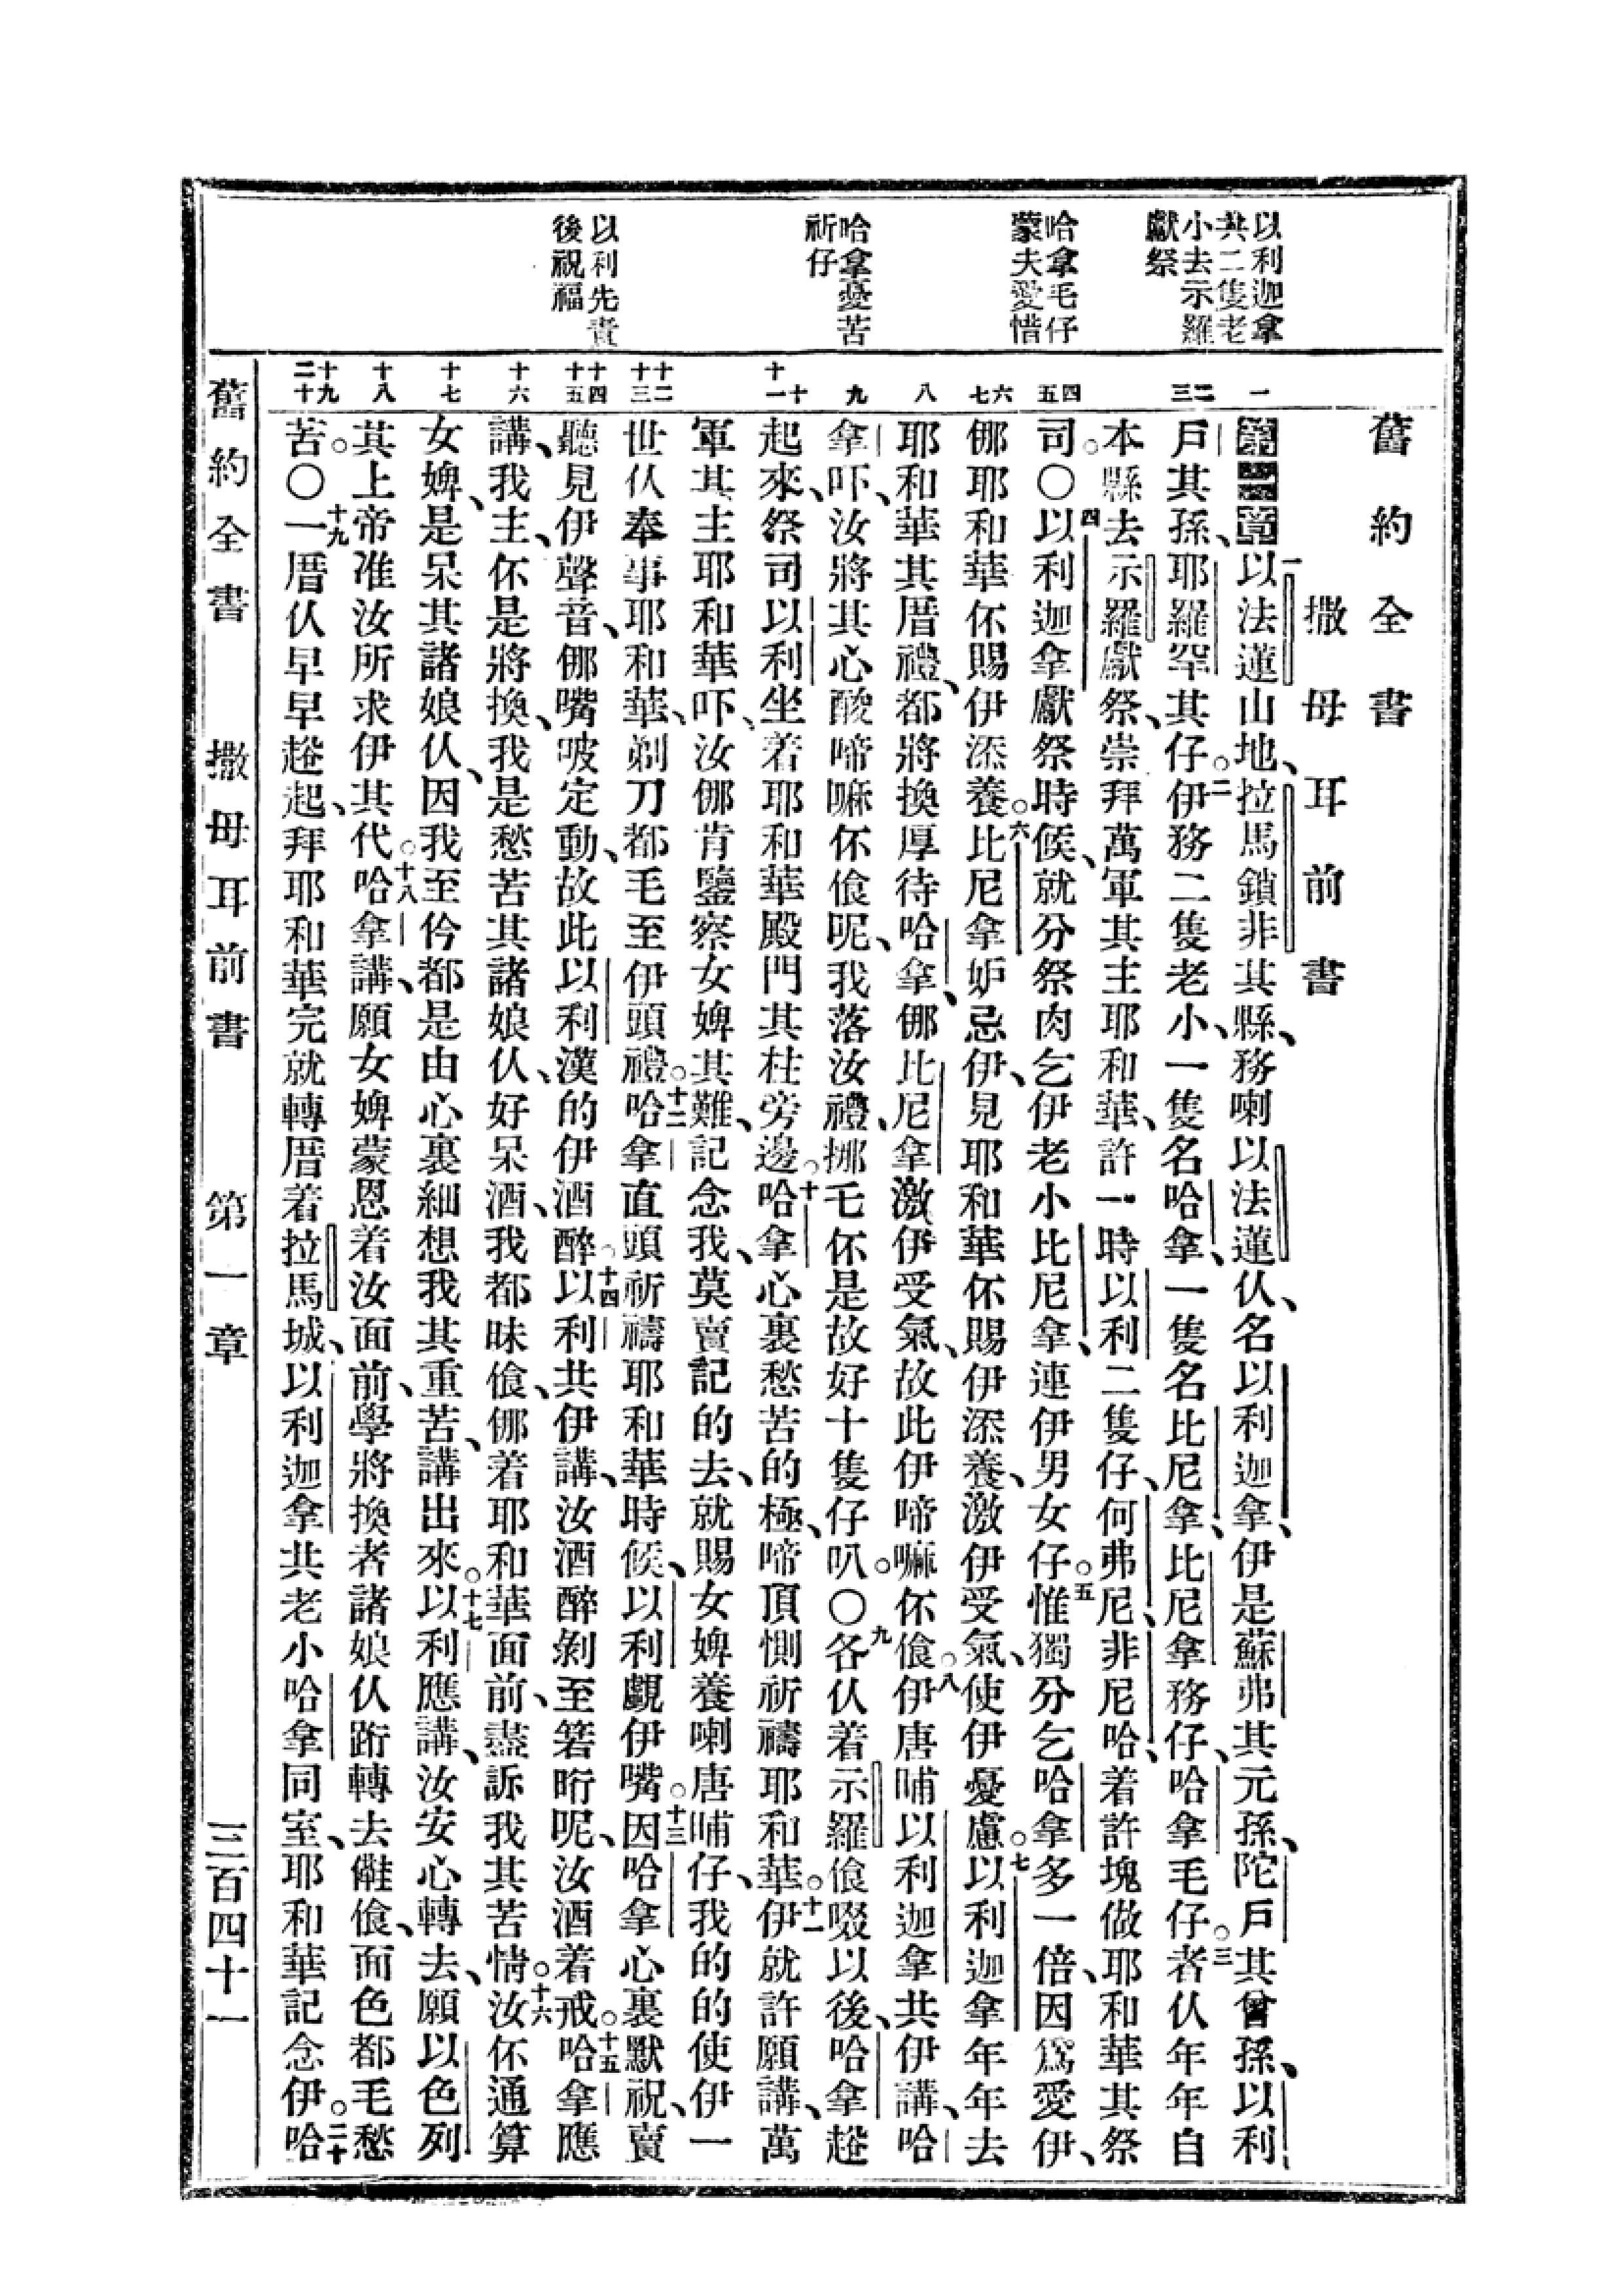 舊約全書
撒母耳前書
以利迦拿
共二隻老
小去示羅
獻祭
哈拿毛仔
蒙夫愛惜
哈拿憂苦
祈仔
以利先責
後祝福
一
二三
四五
六七
八
九
十十一
十二十三
十四十五
十六
十七
十八
十九二十
第一章一以法蓮山地、拉馬鎖非其縣、務喇以法蓮仈、名以利迦拿、伊是蘇弗其元孫、陀戶其曾孫、以利
戶其孫、耶羅罕其仔。二伊務二隻老小、一隻名哈拿、一隻名比尼拿、比尼拿務仔、哈拿毛仔。三者仈年年自
本縣去示羅獻祭、崇拜萬軍其主耶和華、許一時以利二隻仔、何弗尼、非尼哈、着許塊做耶和華其祭
司。〇四以利迦拿獻祭時候、就分祭肉乞伊老小比尼拿、連伊男女仔。五惟獨分乞哈拿多一倍、因爲愛伊、
㑚耶和華伓賜伊添養。六比尼拿妒忌伊、見耶和華伓賜伊添養、激伊受氣、使伊憂慮。七以利迦拿年年去
耶和華其厝禮、都將換厚待哈拿、㑚比尼拿激伊受氣、故此伊啼嘛伓飡。八伊唐晡以利迦拿共伊講、哈
拿吓、汝將其心酸啼嘛伓飡呢、我落汝禮、挪乇伓是故好十隻仔叭。〇九各仈着示羅飡啜以後、哈拿𨅔
起來、祭司以利坐着耶和華殿門其柱旁邊。十哈拿心裏愁苦的極、啼頂惻祈禱耶和華。十一伊就許願講、萬
軍其主耶和華吓、汝㑚肯鑒察女婢其難、記念我、莫賣記的去、就賜女婢養喇唐晡仔、我的的使伊一
世仈奉事耶和華、剃刀都毛至伊頭禮。十二哈拿直頭祈禱耶和華時候、以利覷伊嘴。十三因哈拿心裏默祝、賣
聽見伊聲音、㑚嘴唆定動、故此以利漢的伊酒醉。十四以利共伊講、汝酒醉剝至箬晍呢、汝酒着戒。十五哈拿應
講、我主、伓是將換、我是愁苦其諸娘仈、好呆酒、我都昧飡、㑚着耶和華面前、盡訴我其苦情。十六汝伓通算
女婢、是呆其諸娘仈、因我至仱都是由心裏細想我其重苦、講出來。十七以利應講、汝安心轉去、願以色列
其上帝准汝所求伊其代。十八哈拿講、願女婢蒙恩着汝面前、學將換者諸娘仈跭轉去儺飡、面色都毛愁
苦。〇十九一厝仈早早𨅔起、拜耶和華完就轉厝着拉馬城、以利迦拿共老小哈拿同室、耶和華記念伊。二十哈
舊約全書 撒母耳前書 第一章 三百四十一